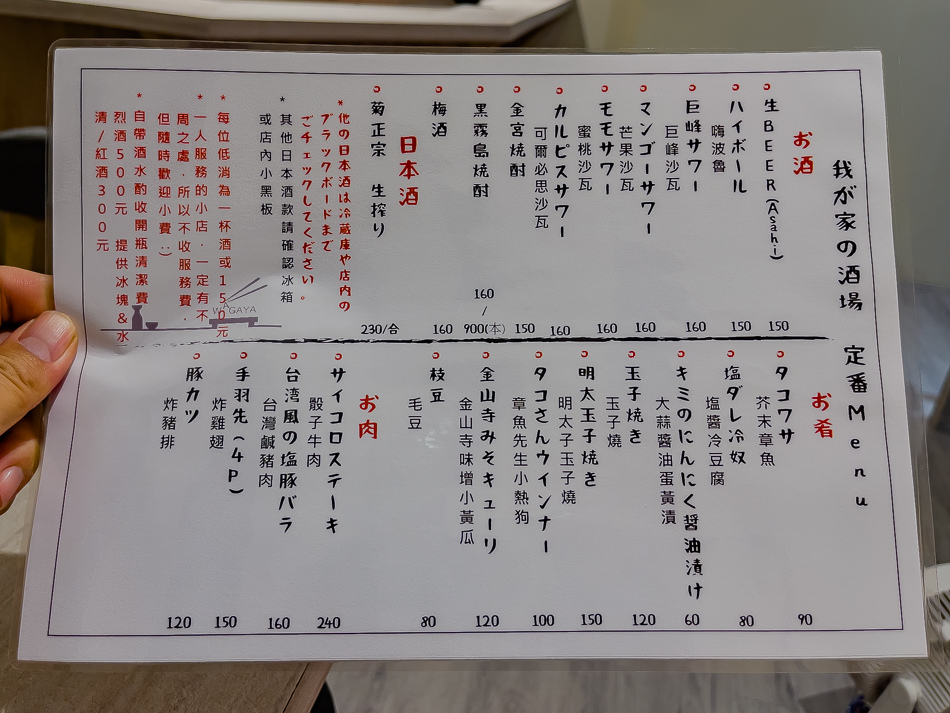 我が家の酒場 定番Menu
お酒
生BEER(Asahi)
150
ハイボール
嗨波魯
150
巨峰サワー
巨峰沙瓦
160
マンゴーサワー
芒果沙瓦
160
モモサワー
蜜桃沙瓦
160
カルピスサワー
可爾必思沙瓦
160
金宮焼酎
150
黒霧島焼酎
160
/
900(本)
梅酒
160
日本酒
菊正宗 生搾り
230/合
*他の日本酒は冷蔵庫や店内の
ブラックボードまで
ごチェックしてください。
*其他日本酒款請確認冰箱
或店內小黑板
*每位低消為一杯酒或150元
*一人服務的小店.一定有不
周之處.所以不收服務費.
但隨時歡迎小費:)
*自帶酒水酌收開瓶清潔費
烈酒500元 提供冰塊&水
清/紅酒300元
WAGAYA
お肴
タコワサ
芥末章魚
90
塩ダレ冷奴
塩醬冷豆腐
80
キミのにんにく醤油漬け
大蒜醬油蛋黃漬
60
玉子焼き
玉子燒
120
明太玉子焼き
明太子玉子燒
150
タコさんウインナー
章魚先生小熱狗
100
金山寺みそキューリ
金山寺味增小黃瓜
120
枝豆
毛豆
80
お肉
サイコロステーキ
骰子牛肉
240
台湾風の塩豚バラ
台灣鹹豬肉
160
手羽先(4P)
炸雞翅
150
豚カツ
炸豬排
120